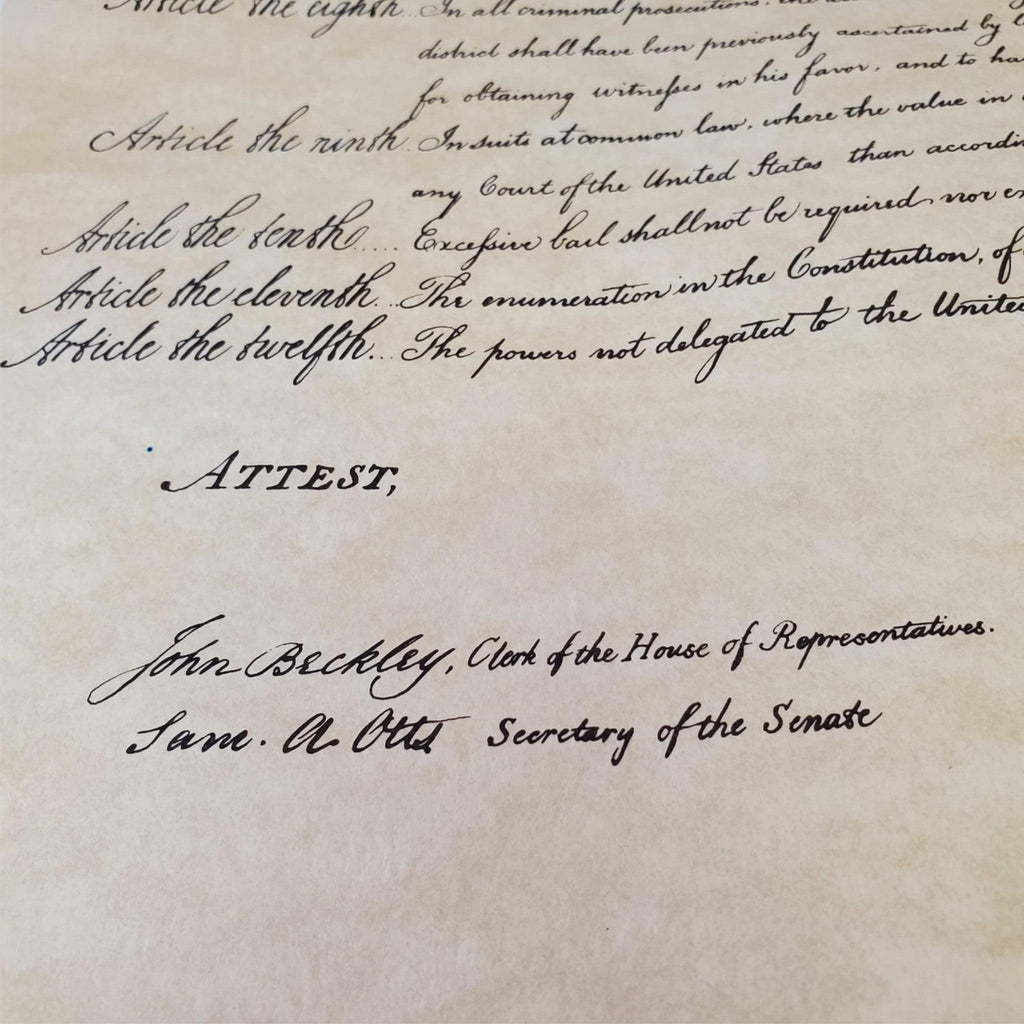 Article the eighth.. In all criminal prosecutions, the
district shall have been previously ascertained by
for obtaining witnesses in his favor, and to
Article the ninth. In suits at common law, where the value in
any Court of the United States than
Article the tenth..... Excessive bail shall not be required, nor
Article the eleventh... The enumeration in the Constitution, of
Article the twelfth... The powers not delegated to the United
ATTEST,
John Beckley, Clerk of the House of Representatives.
Sam. A. Otis Secretary of the Senate